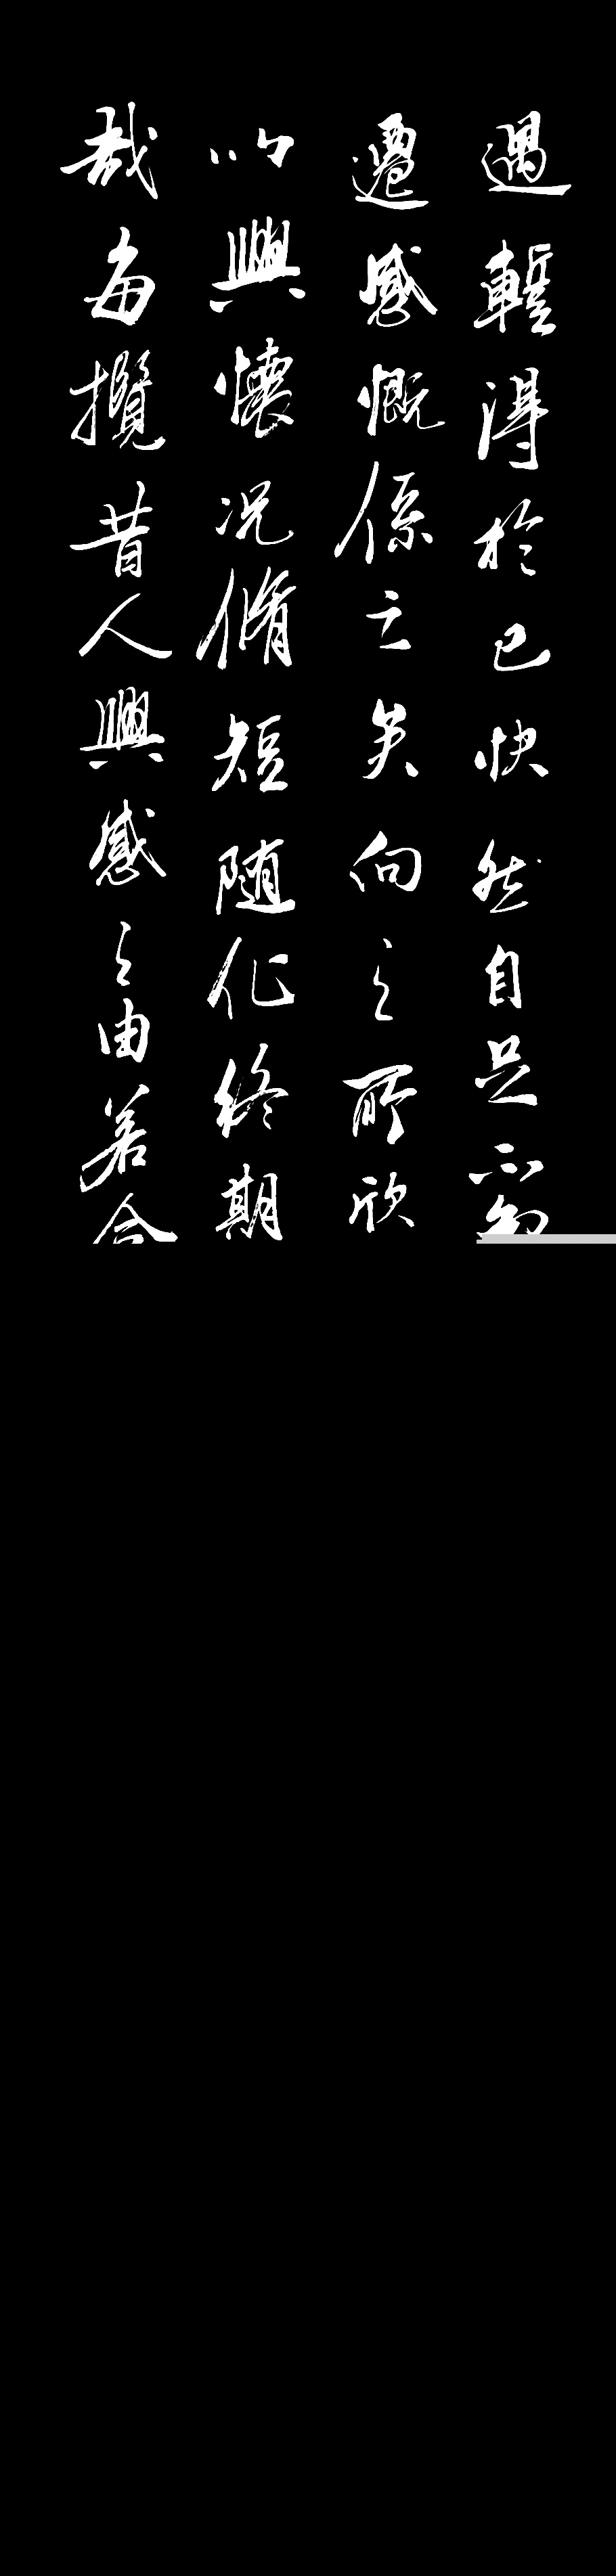 遇蹔得於己快然自足不知
遷感慨係之矣向之所欣
以興懷况脩短随化終期
哉每攬昔人興感之由若合